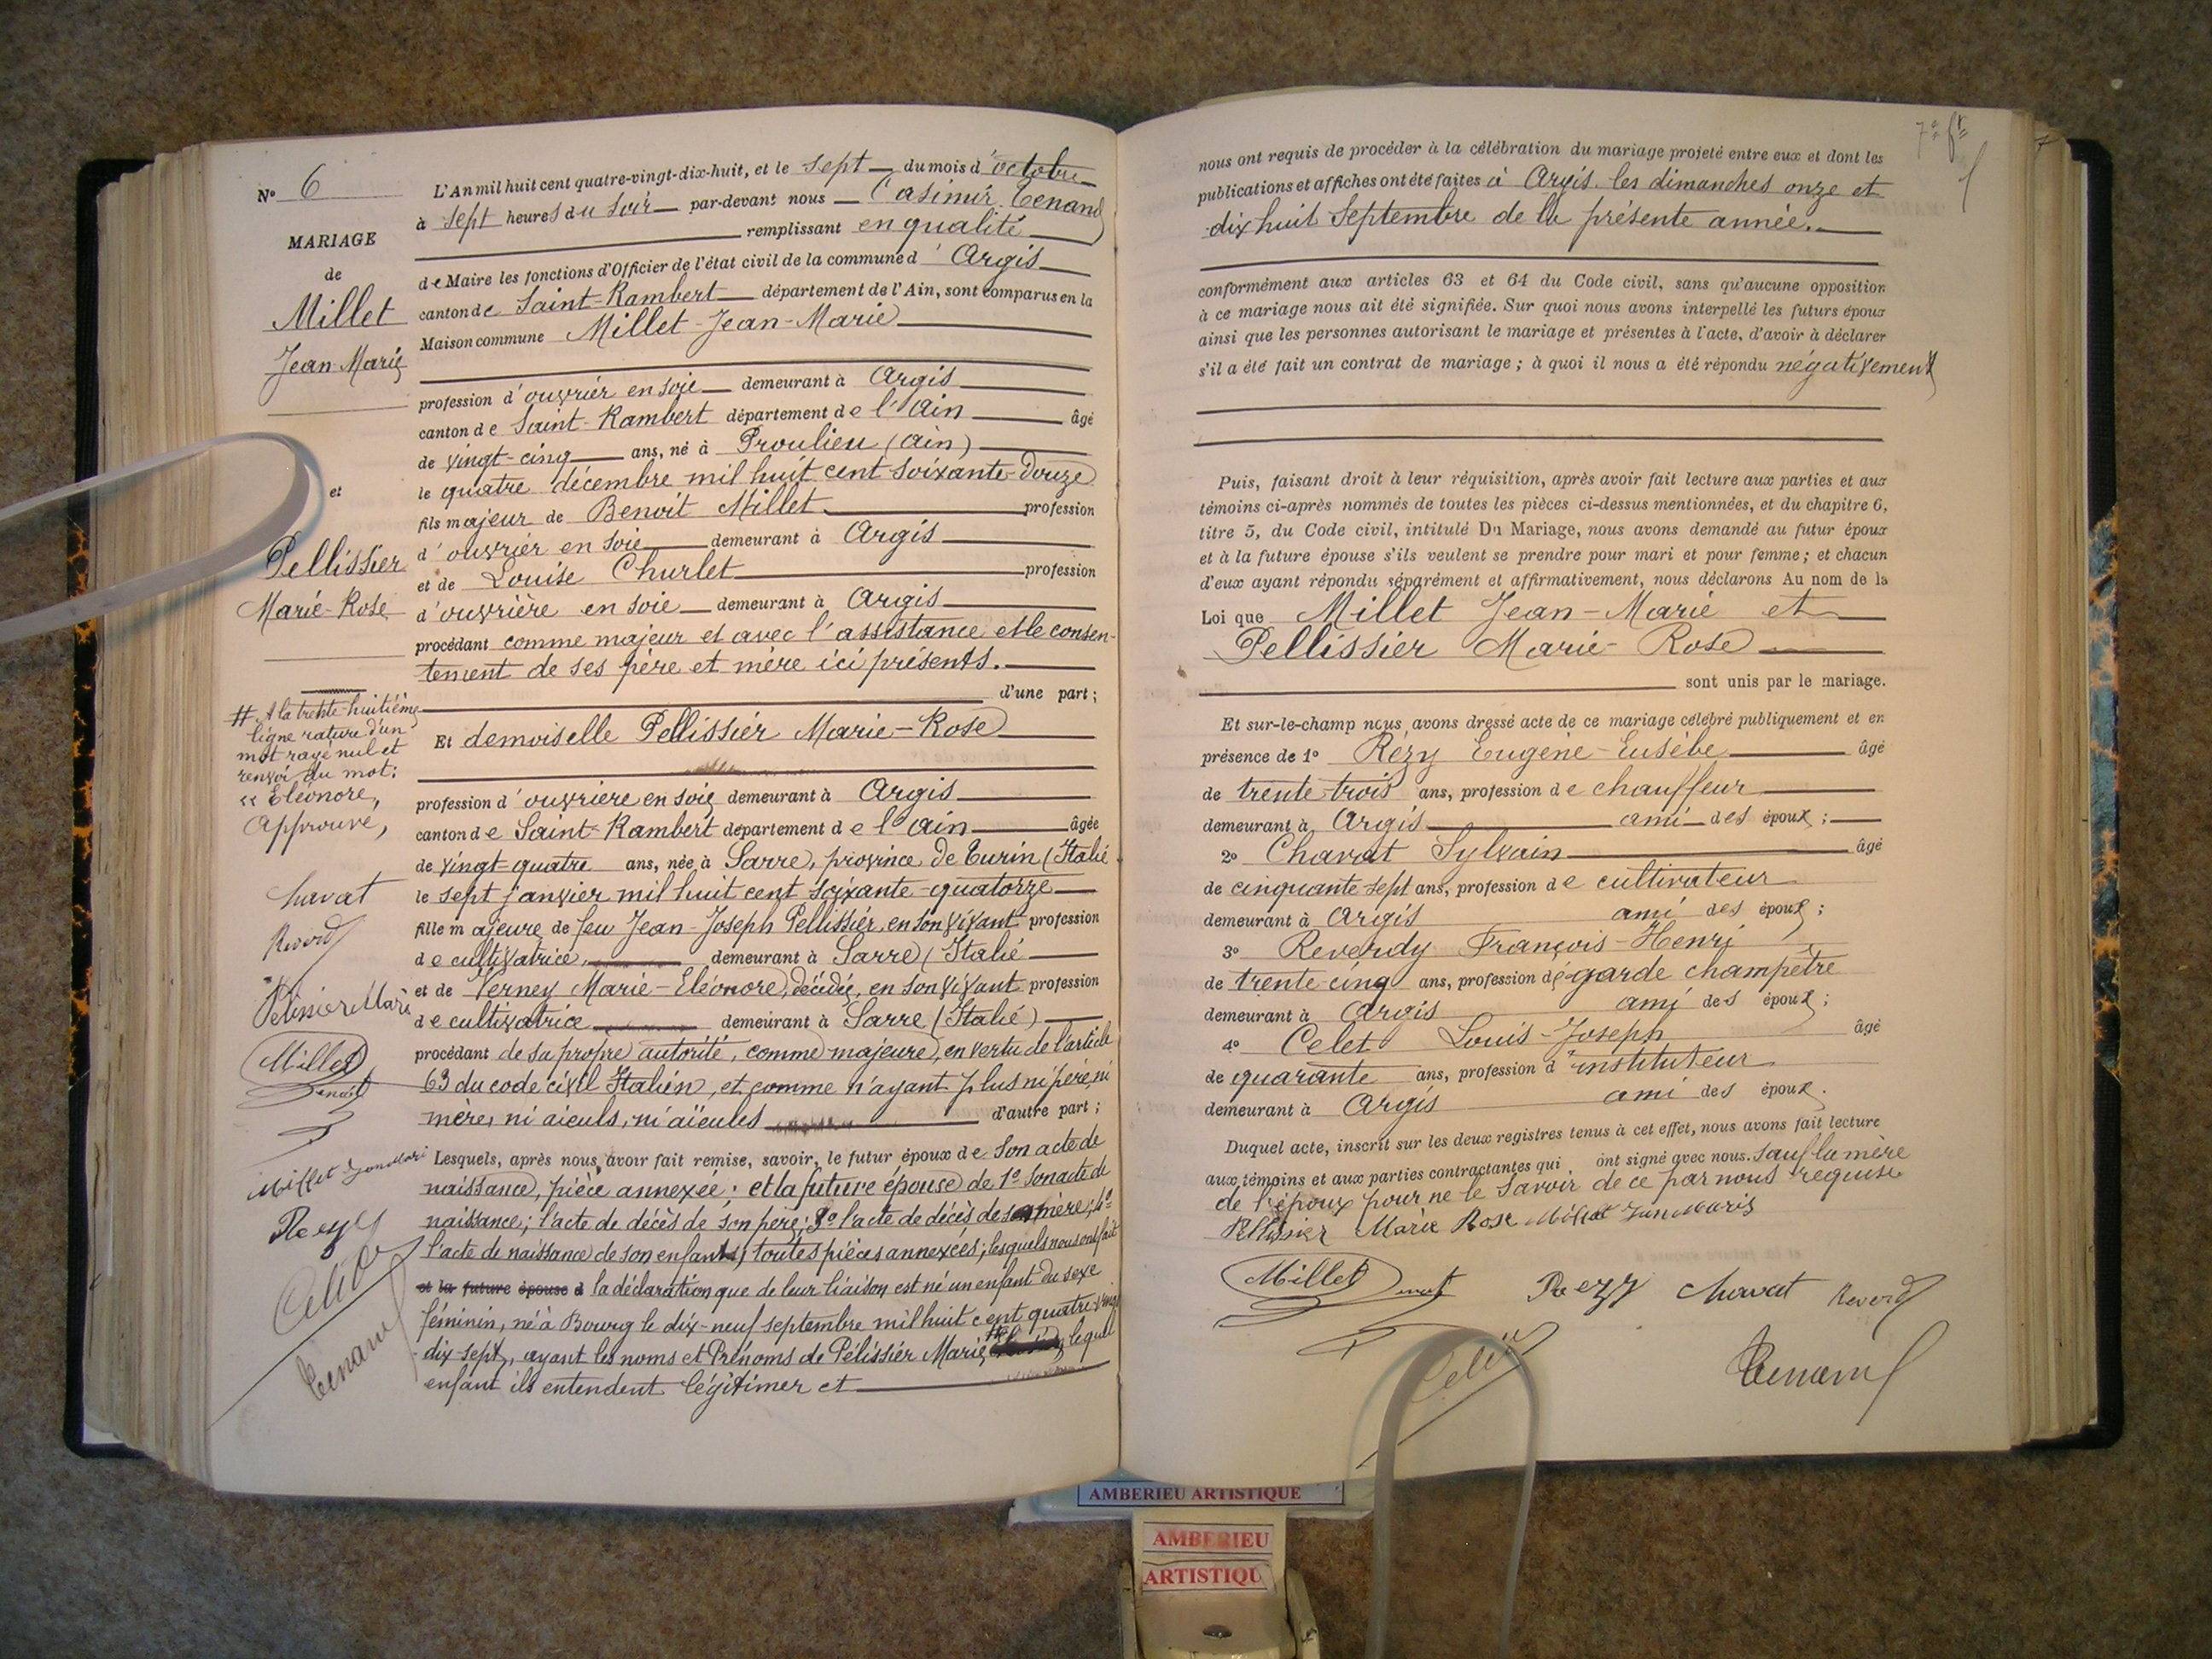 N° 6
MARIAGE
de
Millet
Jean-Marie
et
Pellissier
Marie-Rose
# A la trente-huitième
ligne rature d'un
mot rayé nul et
renvoi du mot:
« Eléonore,
Approuvé,
Chavat
Reverdy
Pelissier Marie
Millet
Benoit
Millet Jean Mari
Rezy
Celet
Tenand
L'An mil huit cent quatre-vingt-dix-huit, et le sept du mois d'octobre
à sept heures du soir par-devant nous Casimir Tenand
remplissant en qualité
de Maire les fonctions d'Officier de l'état civil de la commune d'Argis
canton de Saint-Rambert département de l'Ain, sont comparus en la
Maison commune Millet-Jean-Marie
profession d'ouvrier en soie demeurant à Argis
canton de Saint-Rambert département de l'Ain âgé
de vingt-cinq ans, né à Proulieu (Ain)
le quatre décembre mil huit cent soixante-douze
fils majeur de Benoit Millet profession
d'ouvrier en soie demeurant à Argis
et de Louise Churlet profession
d'ouvrière en soie demeurant à Argis
procédant comme majeur et avec l'assistance et le consen-
tement de ses père et mère ici présents.
d'une part;
Et demoiselle Pellissier Marie-Rose
profession d'ouvrière en soie demeurant à Argis
canton de Saint-Rambert département de l'Ain âgée
de vingt-quatre ans, née à Sarre, province de Turin (Italie
le sept janvier mil huit cent soixante-quatorze
fille majeure de feu Jean-Joseph Pellissier, en son vivant profession
de cultivatrice, demeurant à Sarre (Italie
et de Verney Marie-Eléonore, décédée, en son vivant profession
de cultivatrice demeurant à Sarre (Italie)
procédant de sa propre autorité, comme majeure, en vertu de l'article
63 du code civil Italien, et comme n'ayant plus ni père, ni
mère, ni aieuls, ni aïeules d'autre part;
Lesquels, après nous avoir fait remise, savoir, le futur époux de son acte de
naissance, pièce annexée; et la future épouse de 1° son acte de
naissance; l'acte de décès de son père; 3° l'acte de décès de sa mère; 4°
l'acte de naissance de son enfant, toutes pièces annexées; lesquels nous ont fait
et la future épouse d la déclaration que de leur liaison est né un enfant du sexe
féminin, né à Bourg le dix-neuf septembre mil huit cent quatre-vingt
dix-sept, ayant les noms et Prénoms de Pélissier Marie # lequel
enfant ils entendent légitimer et
7e ft
7
nous ont requis de procéder à la célébration du mariage projeté entre eux et dont les
publications et affiches ont été faites à Argis les dimanches onze et
dix huit Septembre de la présente année.
conformément aux articles 63 et 64 du Code civil, sans qu'aucune opposition
à ce mariage nous ait été signifiée. Sur quoi nous avons interpellé les futurs époux
ainsi que les personnes autorisant le mariage et présentes à l'acte, d'avoir à déclarer
s'il a été fait un contrat de mariage; à quoi il nous a été répondu négativement
Puis, faisant droit à leur réquisition, après avoir fait lecture aux parties et aux
témoins ci-après nommés de toutes les pièces ci-dessus mentionnées, et du chapitre 6,
titre 5, du Code civil, intitulé Du Mariage, nous avons demandé au futur époux
et à la future épouse s'ils veulent se prendre pour mari et pour femme; et chacun
d'eux ayant répondu séparément et affirmativement, nous déclarons Au nom de la
Loi que Millet Jean-Marie et
Pellissier Marie-Rose
sont unis par le mariage.
Et sur-le-champ nous avons dressé acte de ce mariage célébré publiquement et en
présence de 1° Rézy Eugène-Eusèbe âgé
de trente-trois ans, profession de chauffeur
demeurant à Argis ami des époux;
2° Chavat Sylvain âgé
de cinquante-sept ans, profession de cultivateur
demeurant à Argis ami des époux;
3° Reverdy François-Henri
de trente-cinq ans, profession de garde champêtre
demeurant à Argis ami des époux;
4° Celet Louis-Joseph âgé
de quarante ans, profession d'instituteur
demeurant à Argis ami des époux.
Duquel acte, inscrit sur les deux registres tenus à cet effet, nous avons fait lecture
aux témoins et aux parties contractantes qui ont signé avec nous. sauf la mère
de l'époux pour ne le savoir de ce par nous requise
Pellissier Marie Rose Millet Jean Maris
Millet Benoit Rezy Chavat Reverdy
Celet
Tenand
AMBERIEU ARTISTIQUE
AMBERIEU
ARTISTIQU